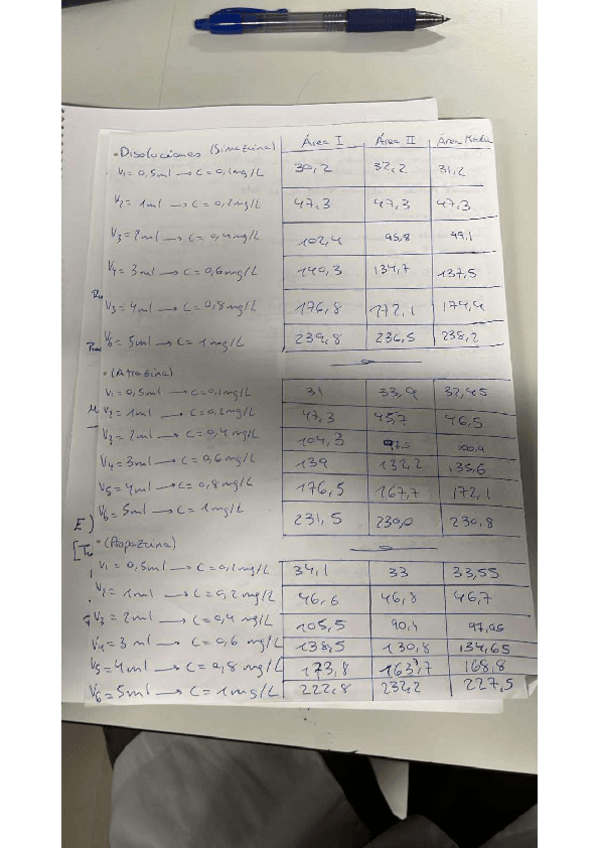 Área I Área II Área Media
• Disoluciones (Simazina)
V1 = 0,5ml → C = 0,1mg/L 30,2 32,2 31,2
V2 = 1ml → C = 0,2mg/L 47,3 47,3 47,3
V3 = 2ml → C = 0,4mg/L 102,4 95,8 99,1
V4 = 3ml → C = 0,6mg/L 140,3 134,7 137,5
V5 = 4ml → C = 0,8mg/L 176,8 172,1 174,4
V6 = 5ml → C = 1mg/L 239,8 236,5 238,2
• (Atrazina)
V1 = 0,5ml → C = 0,1mg/L 31 33,9 32,45
V2 = 1ml → C = 0,2mg/L 47,3 45,7 46,5
V3 = 2ml → C = 0,4mg/L 104,3 97,5 100,4
V4 = 3ml → C = 0,6mg/L 139 132,2 135,6
V5 = 4ml → C = 0,8mg/L 176,5 167,7 172,1
V6 = 5ml → C = 1mg/L 231,5 230,0 230,8
E)
• (Propazina)
V1 = 0,5ml → C = 0,1mg/L 34,1 33 33,55
V2 = 1ml → C = 0,2mg/L 46,6 46,8 46,7
V3 = 2ml → C = 0,4mg/L 105,5 90,4 97,95
V4 = 3ml → C = 0,6 mg/L 138,5 130,8 134,65
V5 = 4ml → C = 0,8 mg/L 173,8 163,7 168,8
V6 = 5ml → C = 1mg/L 222,8 232,2 227,5